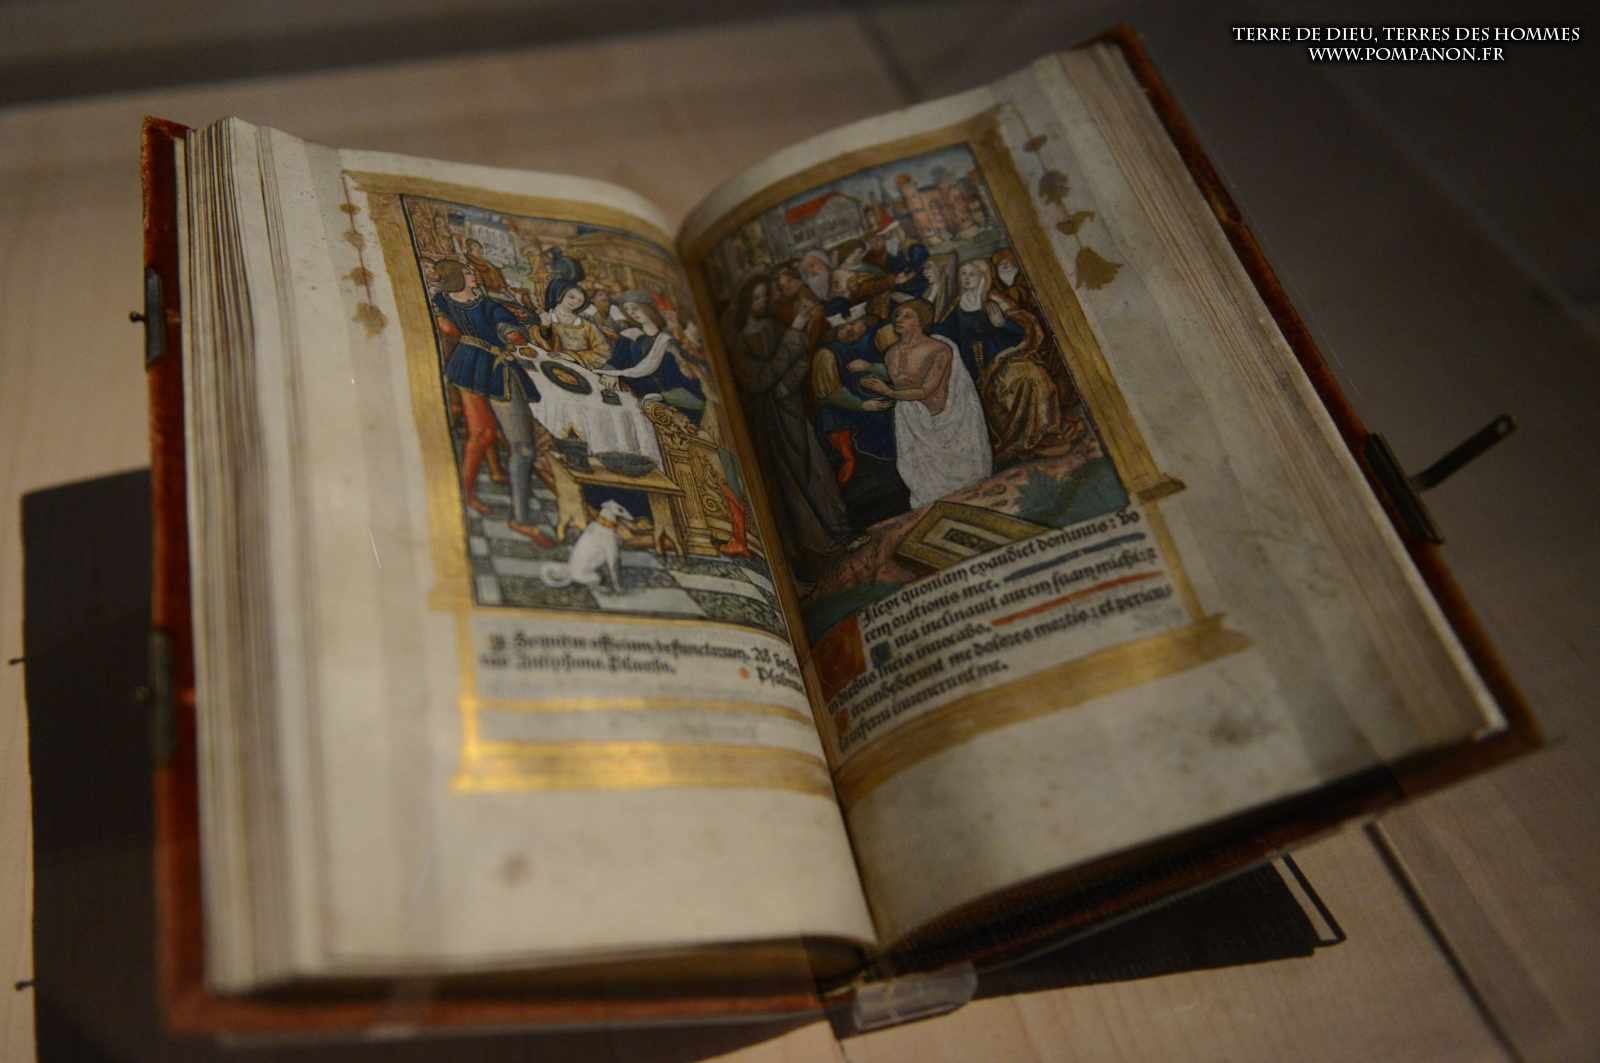 TERRE DE DIEU, TERRES DES HOMMES
WWW.POMPANON.FR
Sequitur officium defunctorum. Ad vesp
Antiphona. Placebo.
Psalmus
Ilexi quoniam exaudiet dominus: vo
cem orationis mee.
uia inclinauit aurem suam michi: &
in diebus meis inuocabo.
ircundederunt me dolores mortis: et pericu
la inferni inuenerunt me.